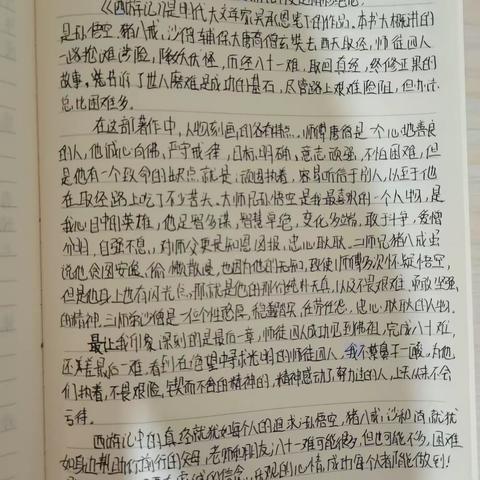 《西游记》是明代大文学家吴承恩笔下的作品。本书大概讲的
是孙悟空,猪八戒,沙僧辅保大唐高僧玄奘去西天取经,师徒四人
一路抢滩涉险,降妖伏怪,历经八十一难,取回真经,终修正果的
故事,告诉了世人磨难是成功的基石,尽管路上艰难险阻,但办法
总比困难多。
在这部著作中,人物刻画的各有特点。师傅唐僧是一个心地善良
的人,他诚心向佛,严守戒律,目标明确,意志顽强,不怕困难,但
是他有一个致命的缺点就是:顽固执着,容易听信于别人,以至于他
在取经路上吃了不少苦头。大师兄孙悟空是我最喜欢的一个人物,是
我心目中的英雄,他足智多谋,智慧卓绝,变化多端,敢于斗争,爱憎
分明,自强不息,对师父更是知恩图报,忠心耿耿。二师兄猪八戒虽
说他贪图安逸、偷懒散漫,也因为他的无知,致使师傅多次怀疑悟空,
但是他身上也有闪光点,那就是他的那份纯朴天真,以及不畏艰难,勇敢坚强,
的精神。三师弟沙僧是一位个性憨厚,稳重踏实,任劳任怨,忠心耿耿的人物。
最让我印象深刻的是最后一章,师徒四人成功见到佛祖,完成八十难,
还差最后一难,看到在绝望中寻求光明的师徒四人,我不禁鼻子一酸,为他
们执着,不畏艰险,锲而不舍的精神的,精神感动了,努力过的人,上天从来不会
亏待。
西游记中的真经就犹如每个人的追求,孙悟空,猪八戒,沙和尚,就犹
如身边帮助你前行的父母,老师和朋友;八十一难可能很多,但也可能不多,困难
的信念,乐观的心情,成功每个人都能做到!